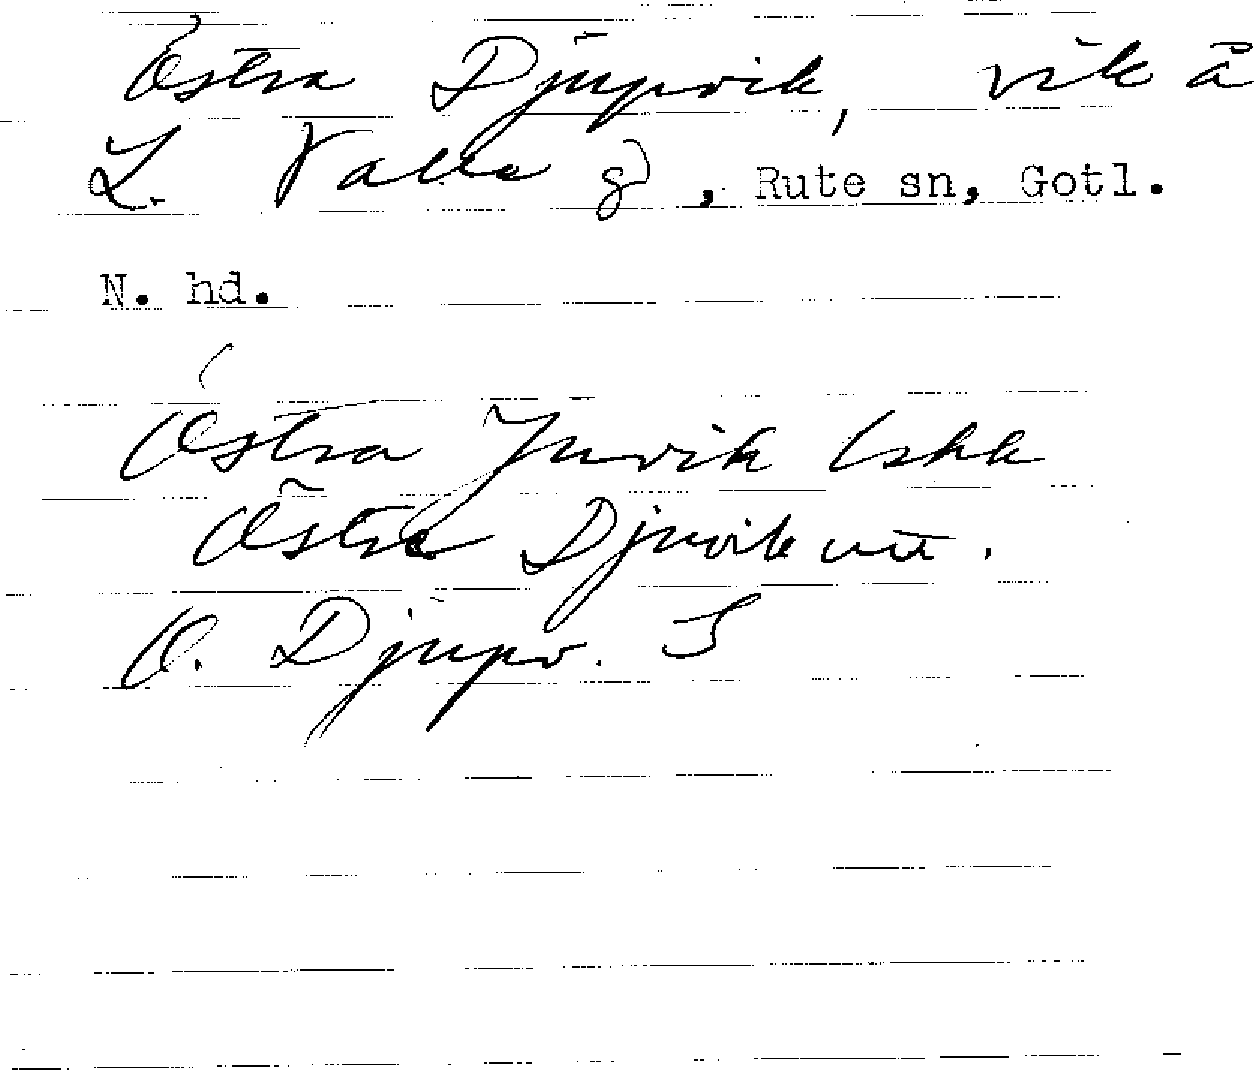 Östra Djupvik, vik å
L. Valle gd, Rute sn, Gotl.
N. hd.
Östra Juvik
Östra Djuvik utt.
Ö. Djupv. S